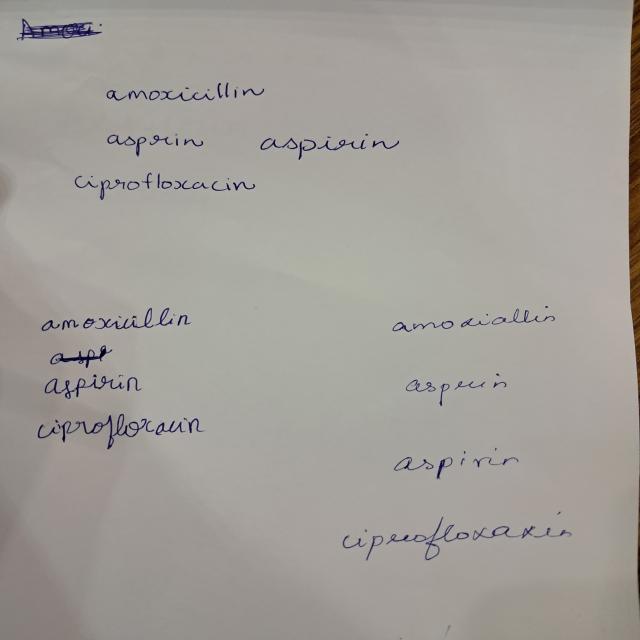 amoxicillin
asprin aspirin
ciprofloxacin
amoxicillin
aspirin
ciprofloxacin
amoxiallin
asprin
aspirin
ciprofloxaxin